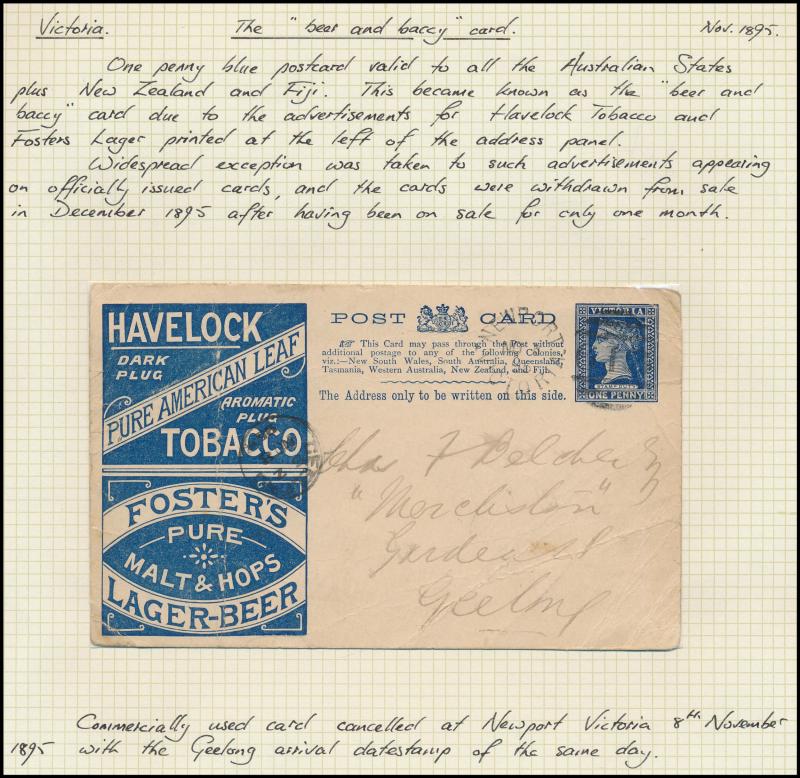 Victoria. The "beer and baccy" card. Nov. 1895.
One penny blue postcard valid to all the Australian States
plus New Zealand and Fiji. This became known as the "beer and
baccy" card due to the advertisements for Havelock Tobacco and
Fosters Lager printed at the left of the address panel.
Widespread exception was taken to such advertisements appearing
on officially issued cards, and the cards were withdrawn from sale
in December 1895 after having been on sale for only one month.
HAVELOCK
DARK
PLUG
PURE AMERICAN LEAF
AROMATIC
PLUG
TOBACCO
FOSTER'S
PURE
MALT & HOPS
LAGER-BEER
POST CARD
This Card may pass through the Post without
additional postage to any of the following Colonies,
viz.:—New South Wales, South Australia, Queensland,
Tasmania, Western Australia, New Zealand, and Fiji.
The Address only to be written on this side.
NEWPORT
VICTORIA
STAMP DUTY
ONE PENNY
Chas F Belcher
"Merchiston"
Garden St
Geelong
Commercially used card cancelled at Newport Victoria 8th November
1895 with the Geelong arrival datestamp of the same day.